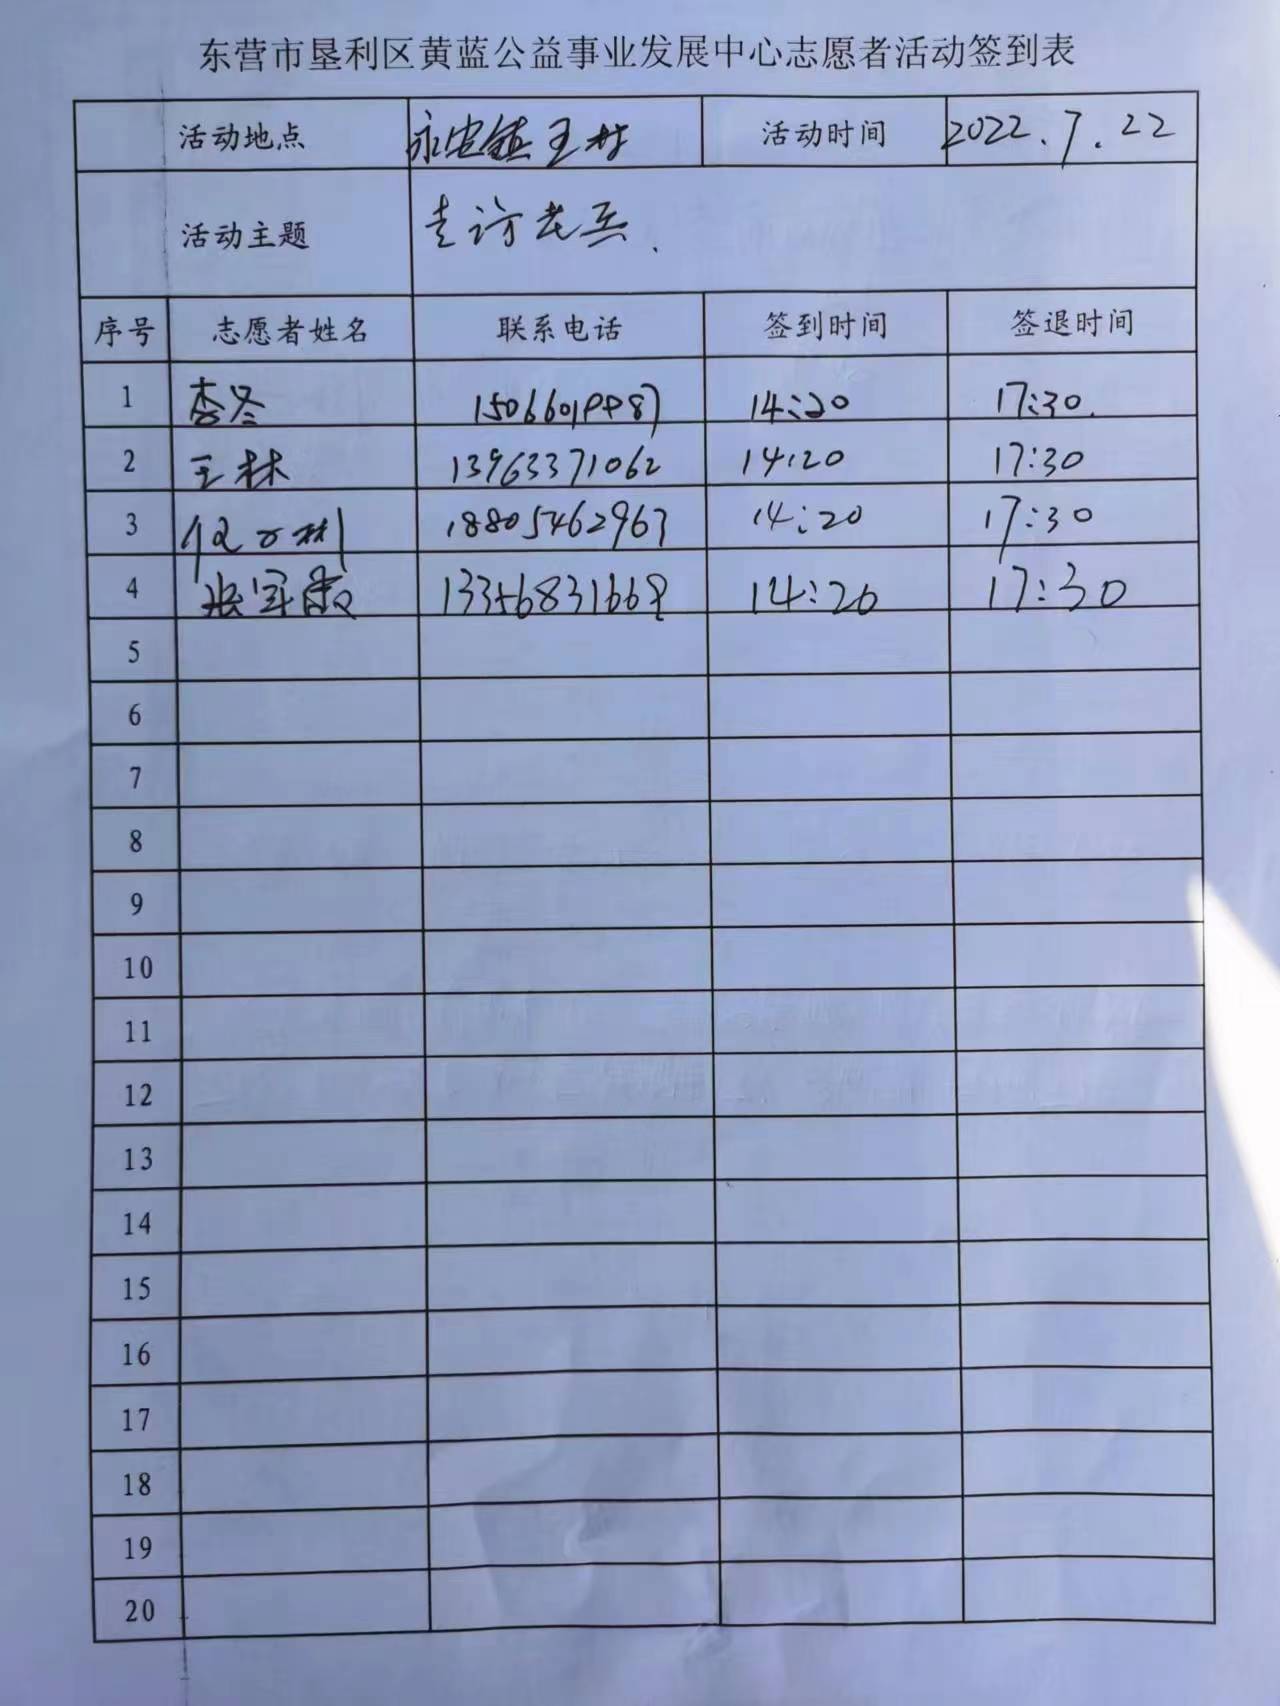 东营市垦利区黄蓝公益事业发展中心志愿者活动签到表
活动地点 永安镇王村 活动时间 2022.7.22
活动主题 走访老兵.
序号 志愿者姓名 联系电话 签到时间 签退时间
1 李冬 14:20 17:30.
2 王林 13963371062 14:20 17:30
3 18805462967 14:20 17:30
4 张军 13356831668 14:20 17:30
5
6
7
8
9
10
11
12
13
14
15
16
17
18
19
20